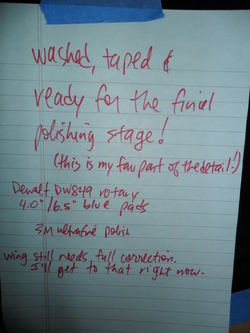 washed, taped &
ready for the final
polishing stage!
(this is my fav part of the detail!)
Dewalt DW849 rotary
4.0"/6.5" blue pads
3M ultrafine polish
wing still needs full correction.
I'll get to that right now.